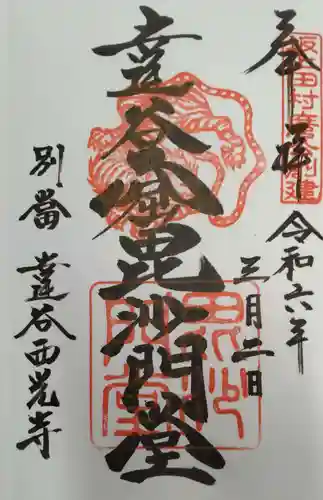 奉拝
坂上田村麿公創建
令和六年
三月二日
達谷窟毘沙門堂
毘沙門堂
別當 達谷西光寺